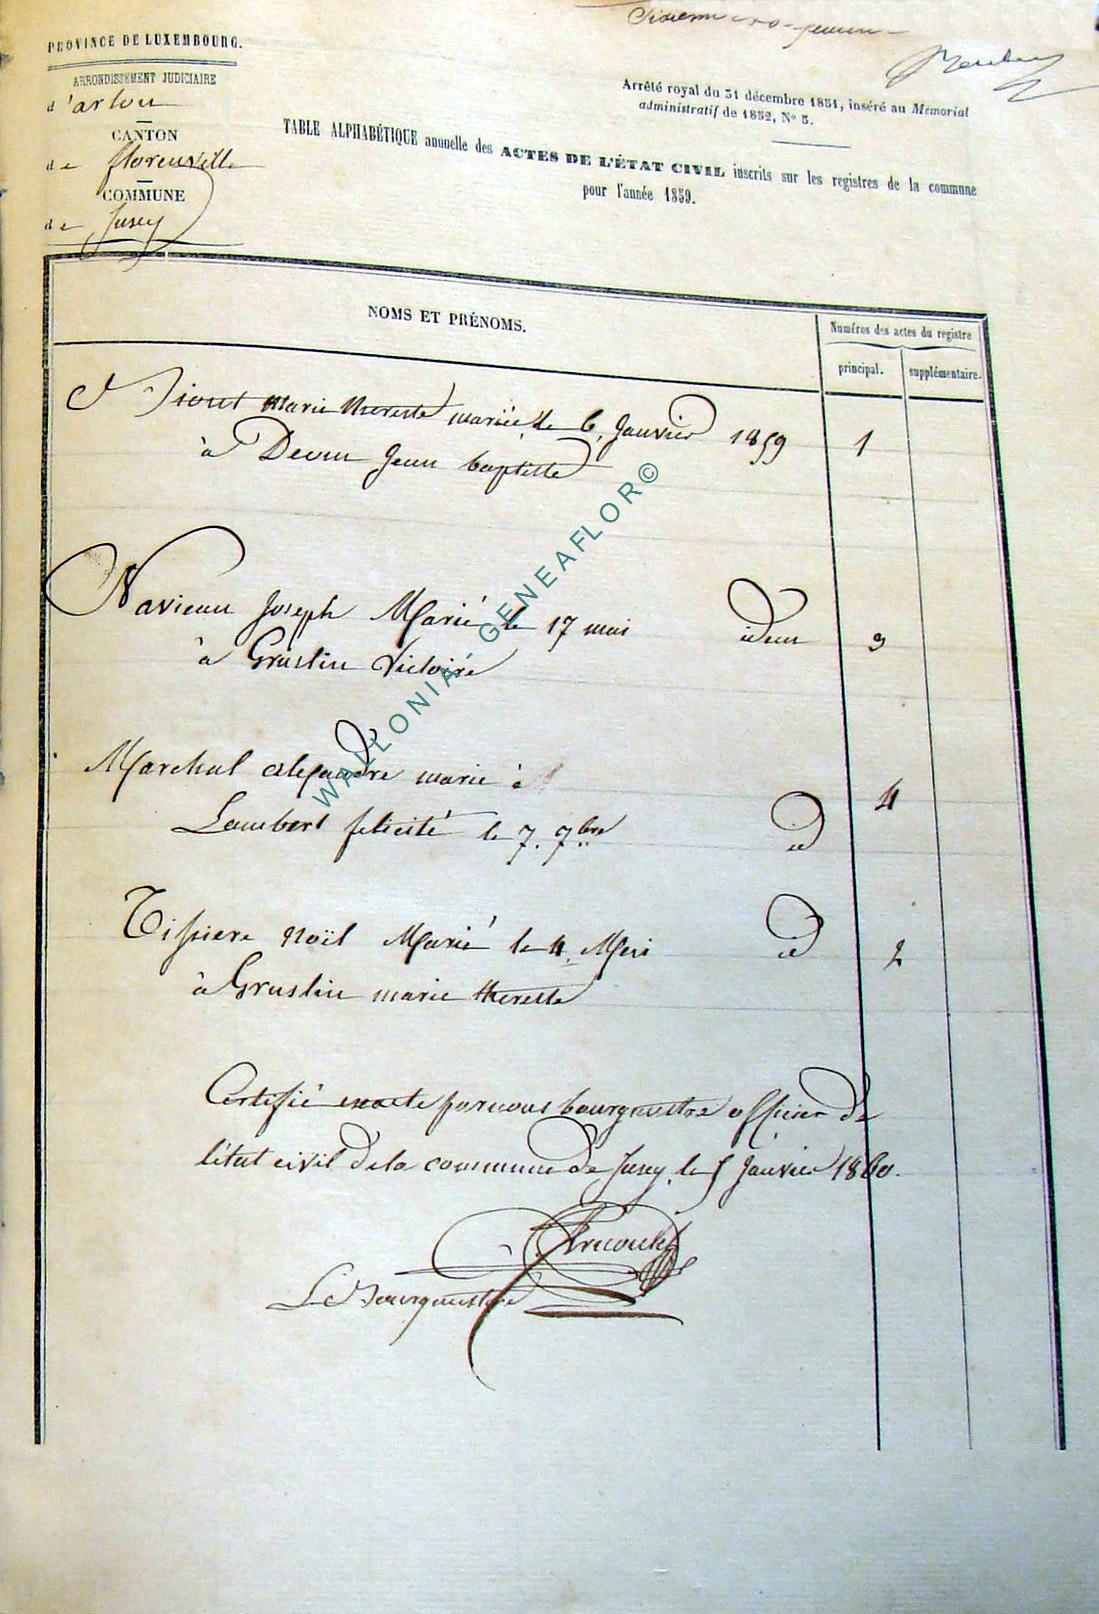 PROVINCE DE LUXEMBOURG.
ARRONDISSEMENT JUDICIAIRE
d'arlon
CANTON
de florenville
COMMUNE
de Jusey
Arrêté royal du 31 décembre 1851, inséré au Mémorial
administratif de 1852, N° 5.
TABLE ALPHABÉTIQUE annuelle des ACTES DE L'ÉTAT CIVIL inscrits sur les registres de la commune
pour l'année 1859.
NOMS ET PRÉNOMS.
Numéros des actes du registre
principal.
supplémentaire.
marie thereste mariée le 6 Janvier 1859 1
à Jean baptiste
Navieau Joseph Marié le 17 mai idem 3
à Gruslin Victoire
Marchal alexandre marié à
Lambert felicité le 7. 9bre id 4
Tissiere Noël Marié le 4 Mai id 2
à Gruslin marie thereste
Certifié exacte par nous bourgmestre officier de
l'état civil de la commune de Jusey, le 5 Janvier 1860.
Le Bourgmestre
WALLONIA GENEAFLOR©